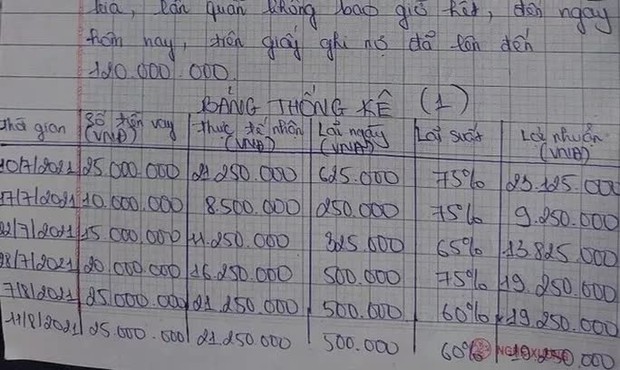 kia, lẩn quẩn không bao giờ hết, đến ngày
hôm nay, tiền giấy ghi nợ đã lên đến
120.000.000.
BẢNG THỐNG KÊ (1)
Thời gian | Số tiền vay (VNĐ) | Thực tế nhận (VNĐ) | Lãi ngày (VNĐ) | Lãi suất | Lợi nhuận (VNĐ)
10/7/2021 | 25.000.000 | 21.250.000 | 625.000 | 75% | 23.125.000
17/7/2021 | 10.000.000 | 8.500.000 | 250.000 | 75% | 9.250.000
22/7/2021 | 15.000.000 | 11.250.000 | 325.000 | 65% | 13.825.000
28/7/2021 | 20.000.000 | 16.250.000 | 500.000 | 75% | 19.250.000
7/8/2021 | 25.000.000 | 21.250.000 | 500.000 | 60% | 19.250.000
11/8/2021 | 25.000.000 | 21.250.000 | 500.000 | 60% | 19.250.000